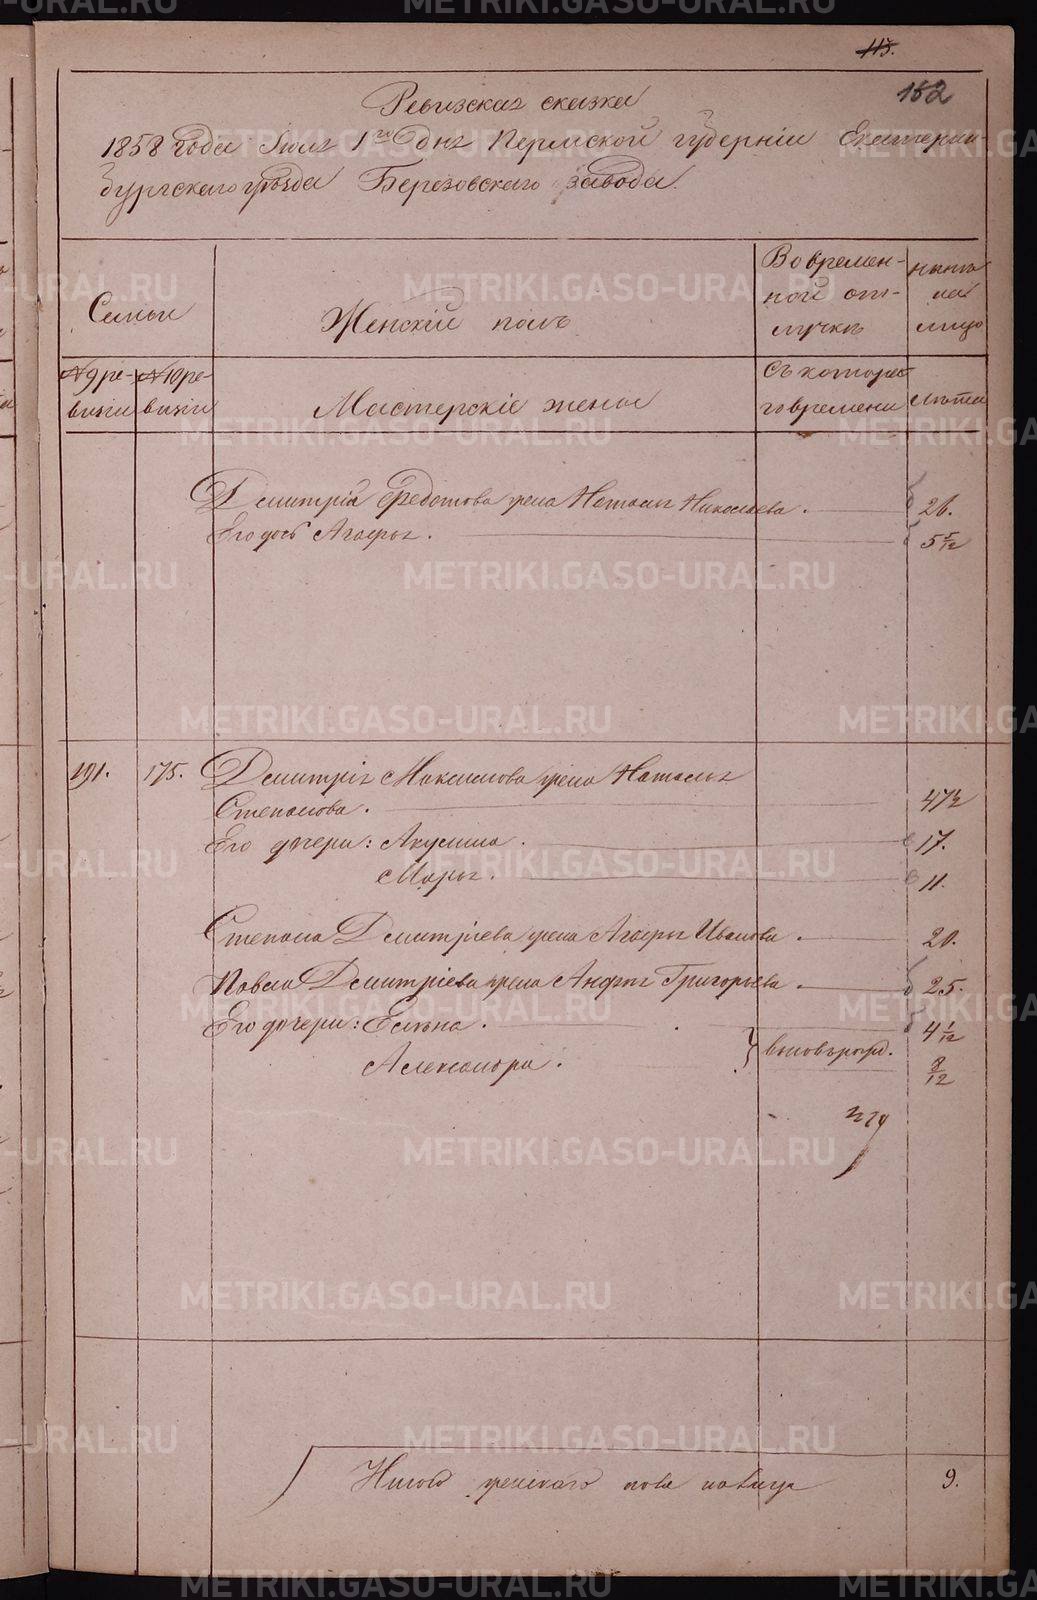 115.
152
Ревизская сказка
1858 года Іюля 1го дня Пермской губерніи Екатерин-
бургскаго уѣзда Березовскаго завода.
Семьи
Женскій полъ
Во времен-
ной от-
лучкѣ
нынѣ
на
лицо
№ 9 ре-
визіи
№ 10 ре-
визіи
Мастерскіе жены
Съ котора-
го времени
лѣта
Дмитрія Ѳедотова жена Наталья Николаева. 26.
Его дочь Агафья. 5 5/12
191. 175. Дмитрія Максимова жена Наталья
Степанова. 47½
Его дочери: Акулина. 17.
Марья. 11.
Степана Дмитріева жена Агафья Иванова. 20.
Павла Дмитріева жена Анфія Григорьева. 25.
Его дочери: Елена. 4 1/12
Александра. } вновь рожд. 8/12
Итого женскаго пола на лицо 9.
METRIKI.GASO-URAL.RU